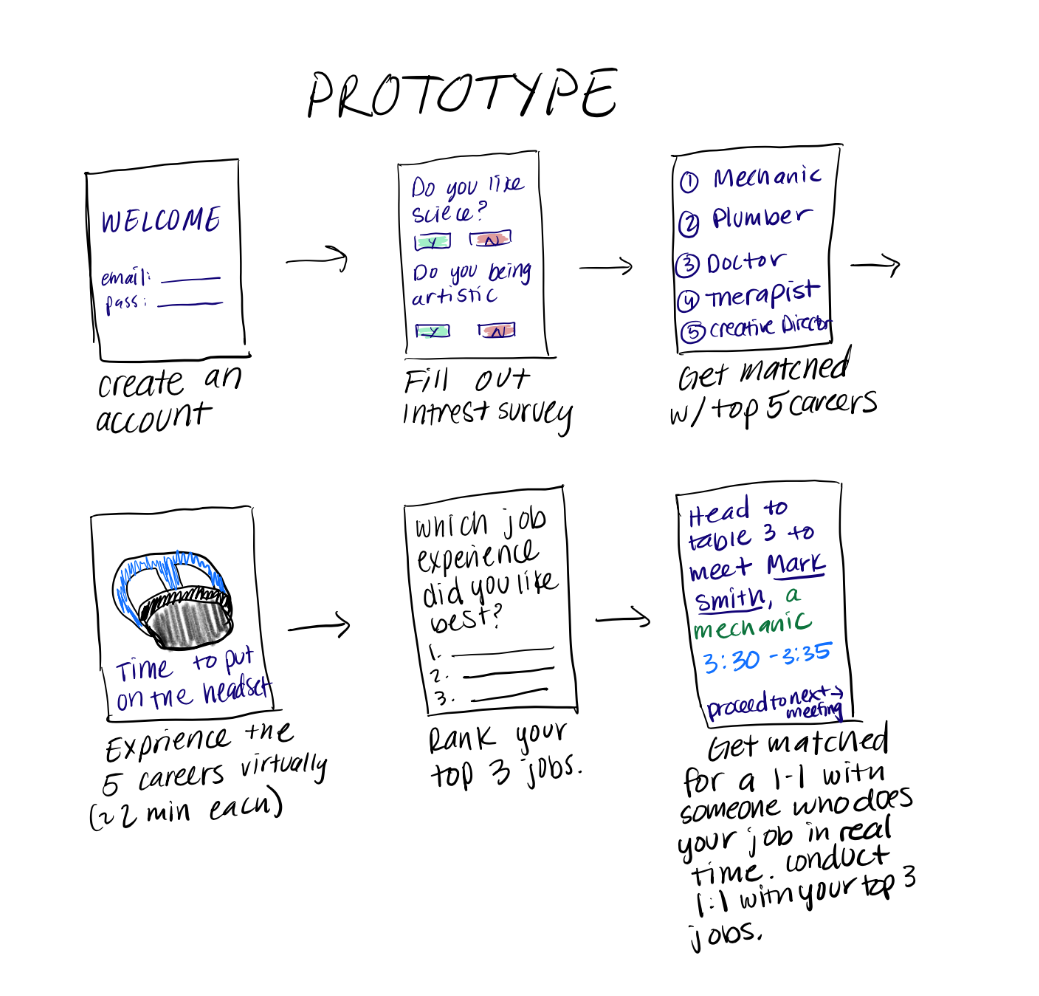 PROTOTYPE
WELCOME
email:
pass:
create an
account
Do you like
sciece?
Y N
Do you being
artistic
Y N
Fill out
intrest survey
① Mechanic
② Plumber
③ Doctor
④ Therapist
⑤ Creative Director
Get matched
w/ top 5 careers
Time to put
on the headset
Exprience the
5 careers virtually
(~2 min each)
Which job
experience
did you like
best?
1.
2.
3.
Rank your
top 3 jobs.
Head to
table 3 to
meet Mark
Smith, a
mechanic
3:30 - 3:35
proceed to next →
meeting
Get matched
for a 1-1 with
someone who does
your job in real
time. conduct
1:1 with your top 3
jobs.